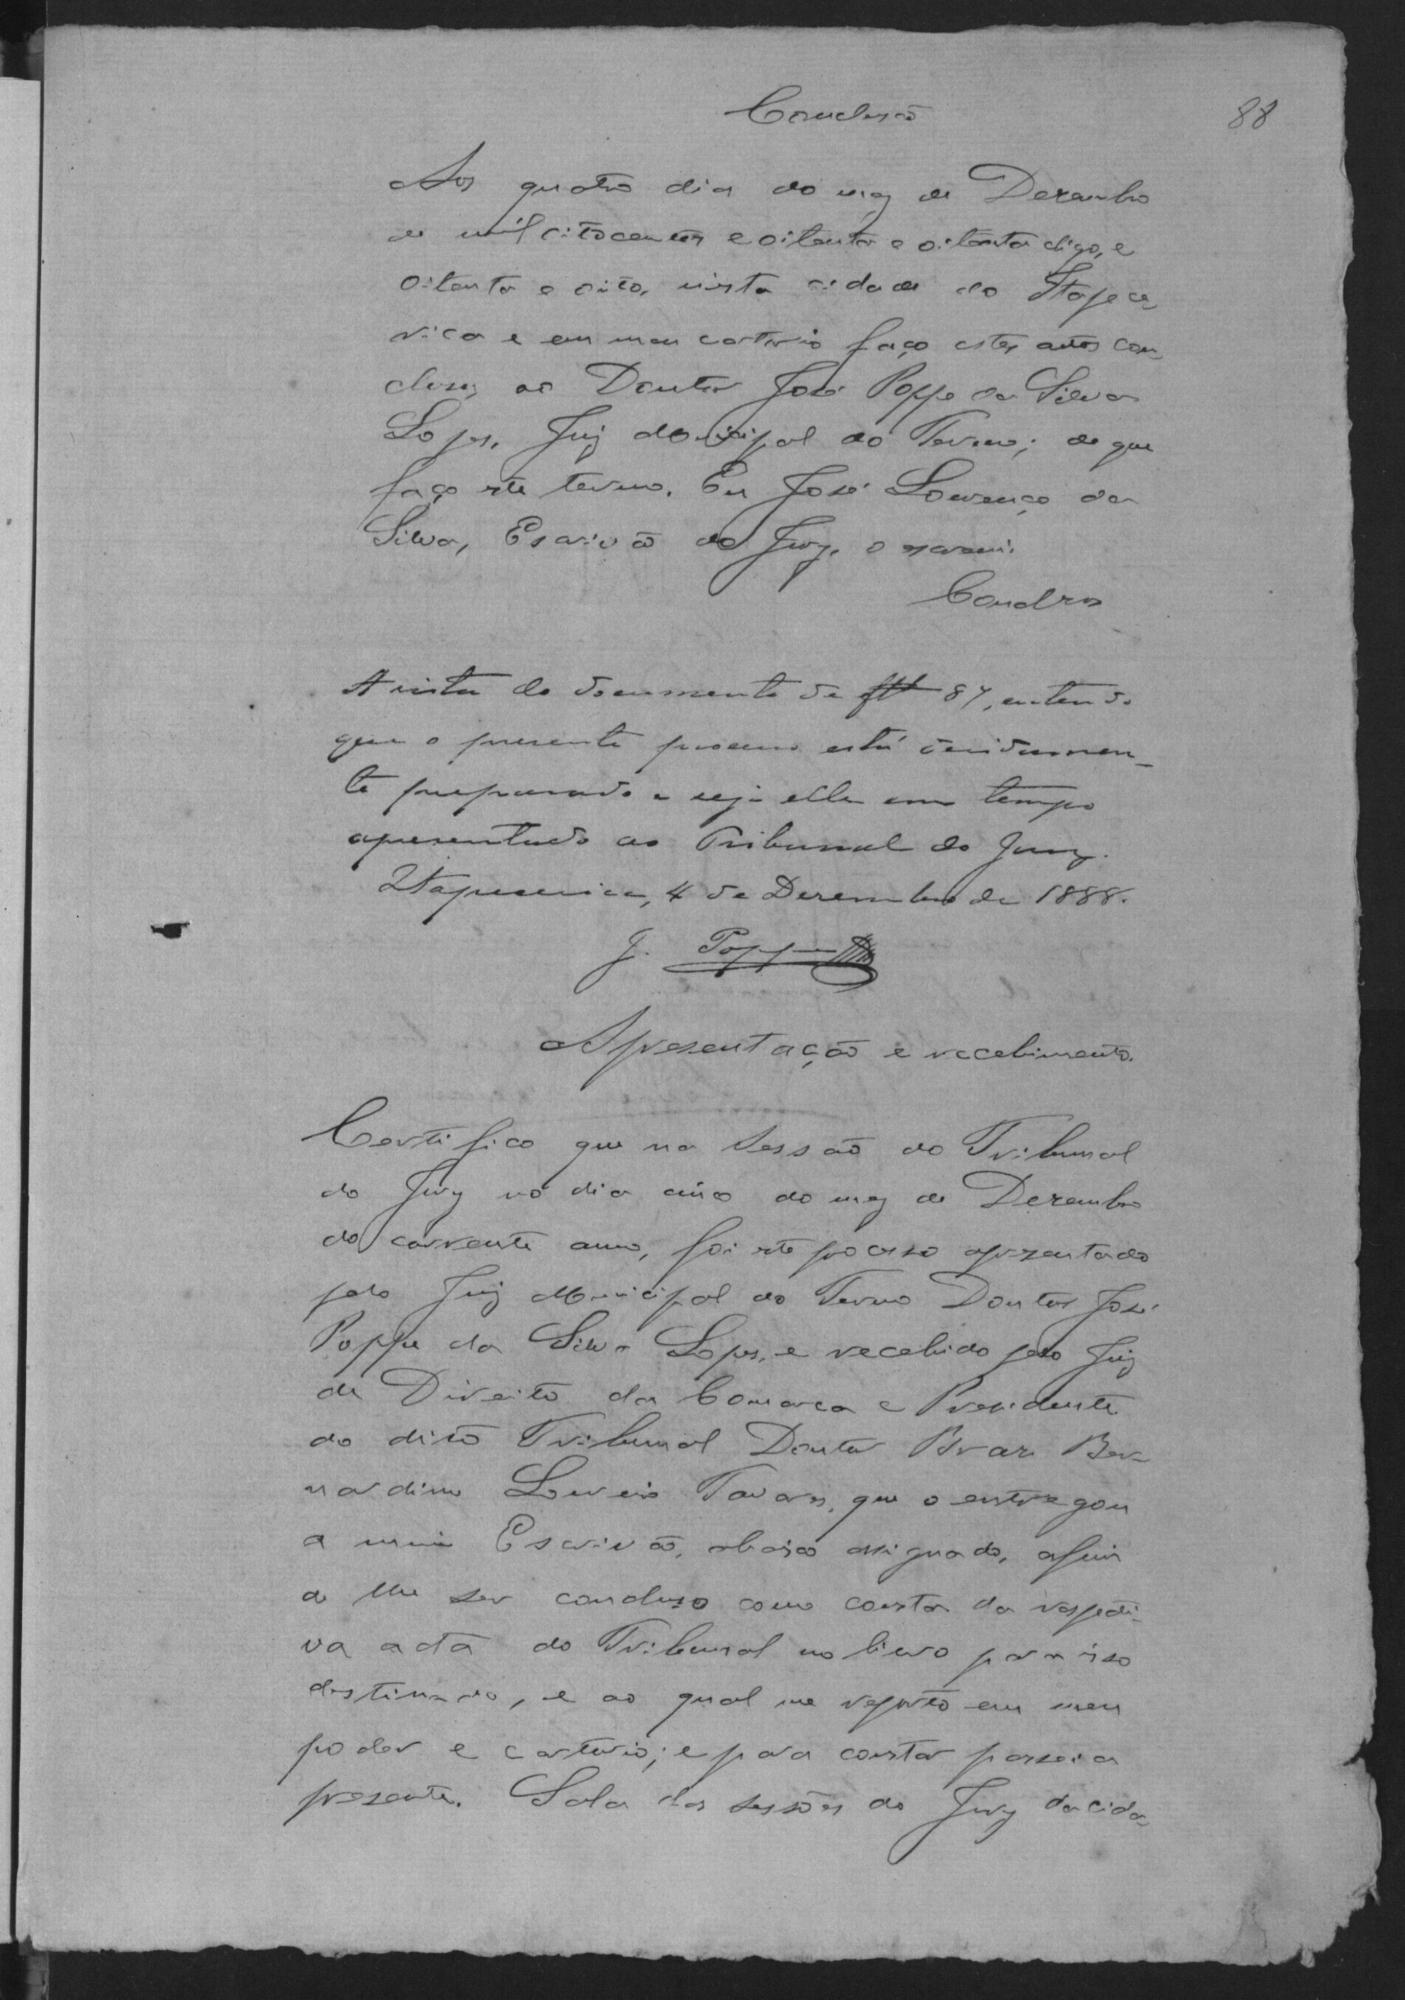 88
Conclusão
Aos quatro dias do mez de Dezembro
de mil oitocentos e oitenta e oitenta digo, e
oitenta e oito, nesta cidade do Itapece-
rica e em meu cartorio faço estes autos con-
clusos ao Doutor José Poppe da Silva
Lopes, Juiz Municipal do Termo; do que
faço este termo. Eu José Lourenço da
Silva, Escrivão do Jury, o escrevi.
Conclusos
A vista do documento de fls 87, entendo
que o presente processo está devidamen-
te preparado e seja elle em tempo
apresentado ao Tribunal do Jury.
Itapecerica, 4 de Dezembro de 1888.
J. Poppe
Apresentação e recebimento.
Certifico que na sessão do Tribunal
do Jury no dia cinco do mez de Dezembro
do corrente anno, foi este processo aprezentado
pelo Juiz Municipal do Termo Doutor José
Poppe da Silva Lopes, e recebido pelo Juiz
de Direito da Comarca e Presidente
do dito Tribunal Doutor Braz Ber-
nardino Loureiro Tavares, que o entregou
a mim Escrivão, abaixo assignado, afim
de lhe ser concluso como consta da respecti-
va acta do Tribunal no livro para isso
destinado, e ao qual me reporto em meu
poder e cartorio; e para constar passei a
presente. Sala das sessões do Jury da cida-